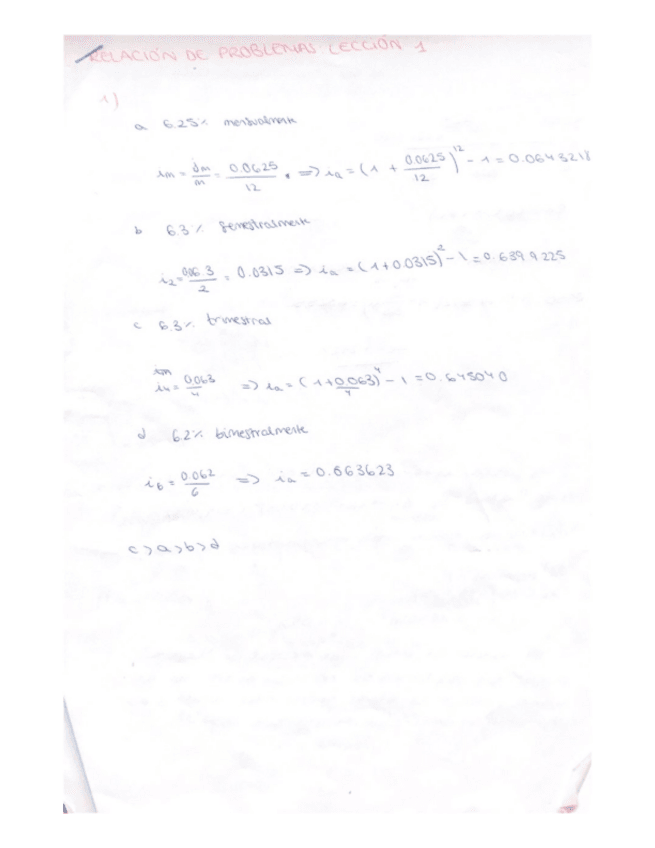 RELACIÓN DE PROBLEMAS LECCIÓN 1
1)
a 6.25% mensualmente
im = jm/m = 0.0625/12 . => ia = (1 + 0.0625/12)^12 - 1 = 0.0643218
b 6.3% semestralmente
i2 = 006.3/2 = 0.0315 => ia = (1+0.0315)^2 - 1 = 0.6399225
c 6.3% trimestral
im
i4 = 0.063/4 => ia = (1+0.063/4)^4 - 1 = 0.645040
d 6.2% bimestralmente
i6 = 0.062/6 => ia = 0.063623
c>a>b>d